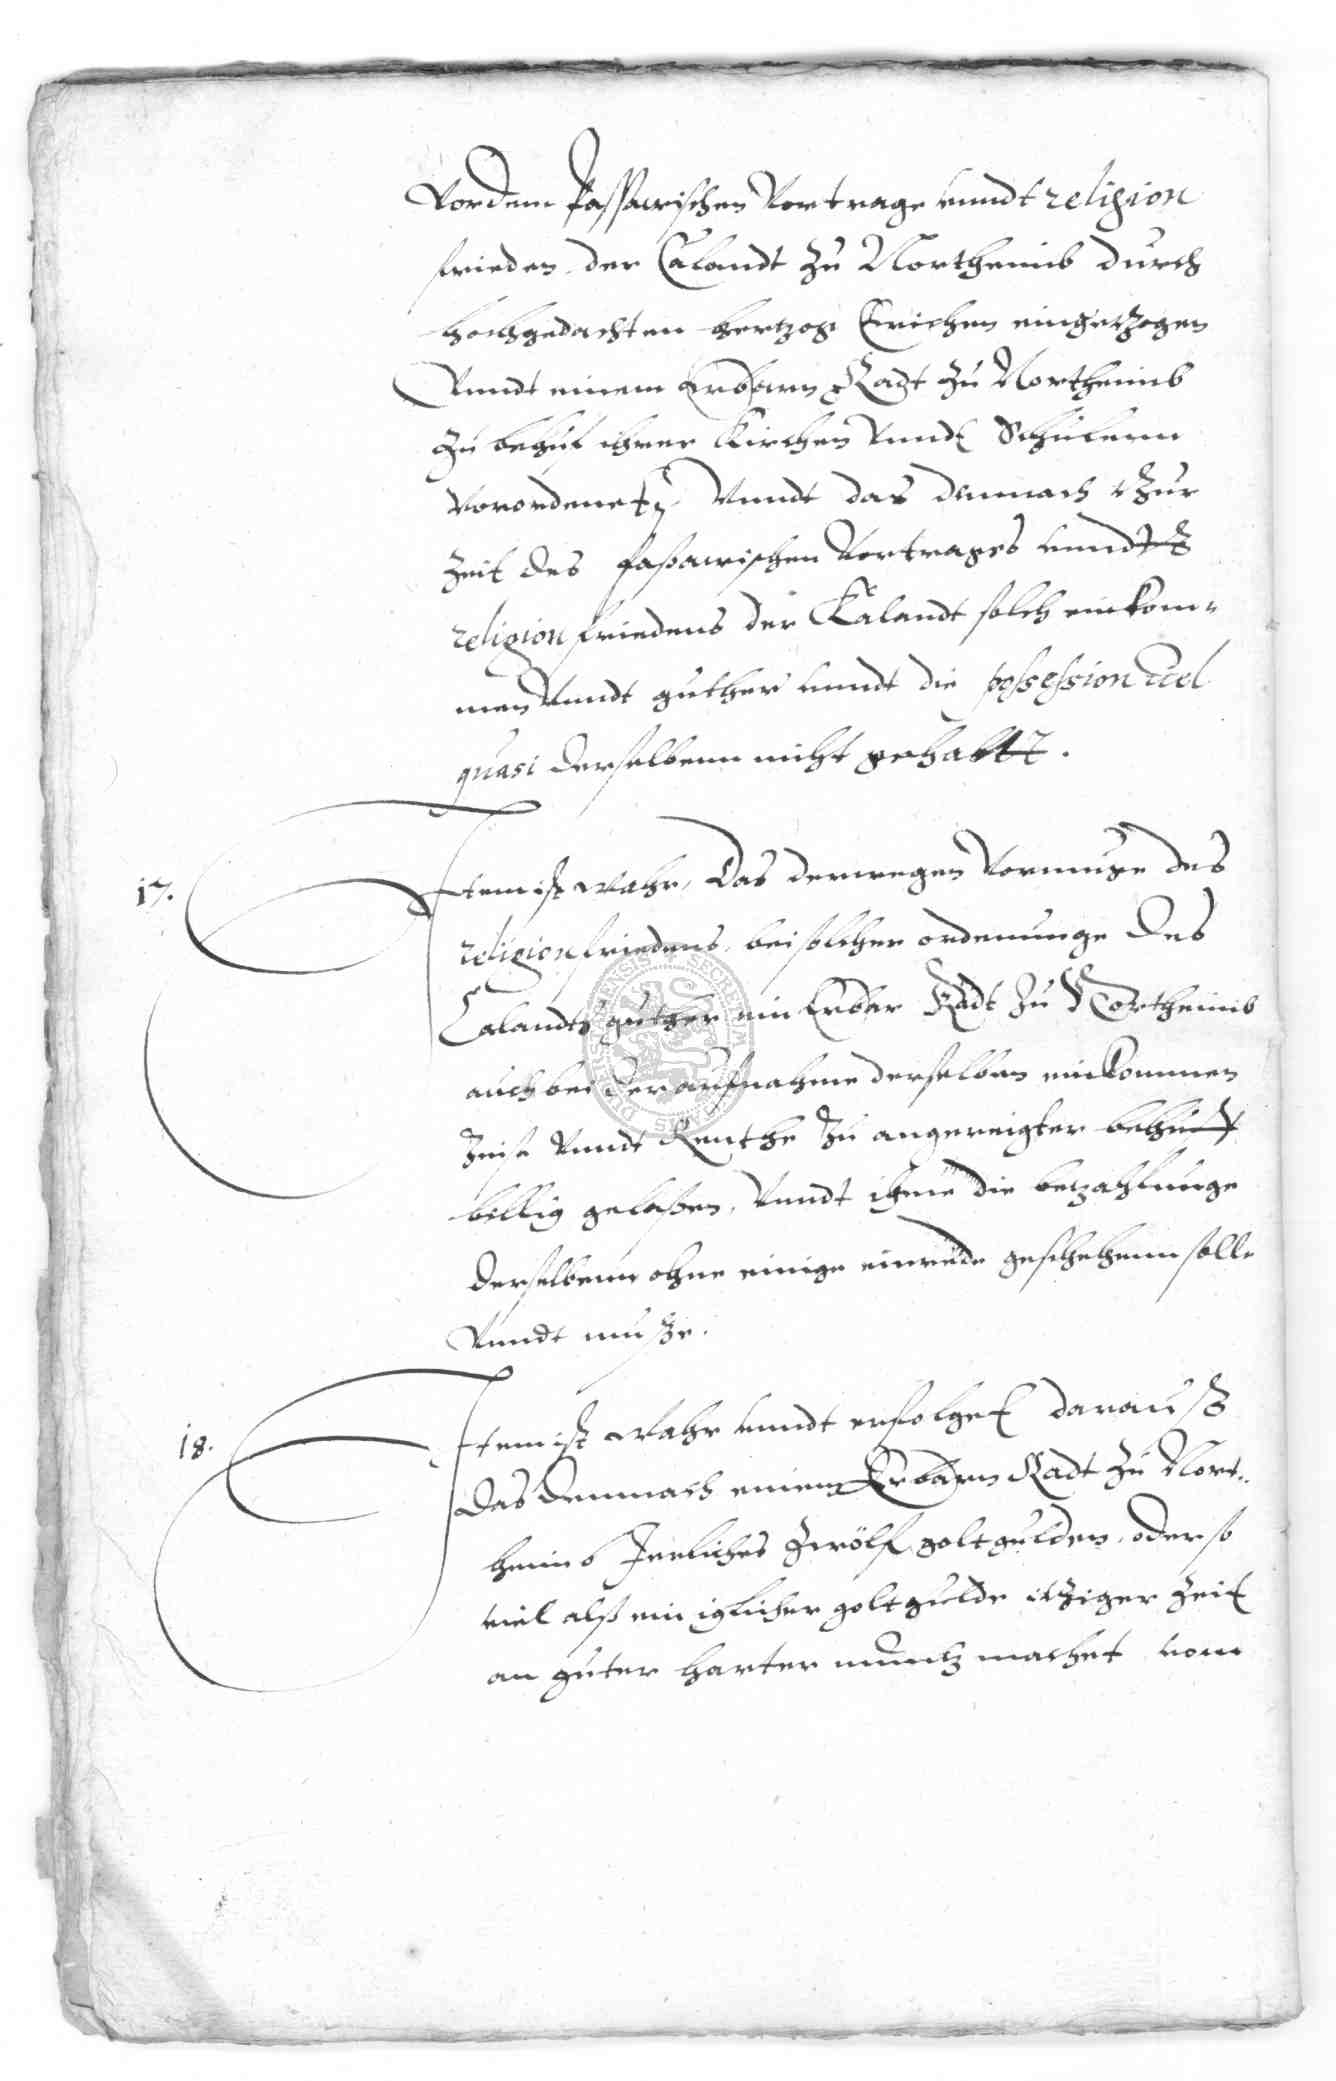 Vor dem Passawischen Vortrage unndt religion
frieden, der Calandt zu Northeimb durch
hochgedachten hertzog Erichen eingetzogen
Unndt einem Erbarn Radt zu Northeimb
zu behuf ihrer Kirchen unnd Schulenn
verordenet, Unndt das demnach tzur
Zeit des Passawischen Vortrages unndt
religion friedens der Kalandt solch einkom-
men Unndt guther unndt die possession vel
quasi derselbenn nicht gehabtt.
17. Item ist wahr, das derwegen Vormuge des
religion friedens, bei solcher ordenunge des
Calandts guther ein Erbar Radt zu Northeimb
auch bei der aufnahme derselben einkommen
Zinse Unndt Renthe zu angereigter behuff
billig gelaßen, Unndt ihme die betzahlunge
derselbenn ohne einige einrede geschehenn solle
Unndt muße.
18. Item ist wahr unndt erfolget darauß
das demnach einem Erbarn Radt zu Nort-
heimb Jerliches Zwölf goltgulden, oder so
viel alß ein iglicher goltgulde itziger Zeit
an guter harter muntz machet vom
DUCATUS SECRETUM